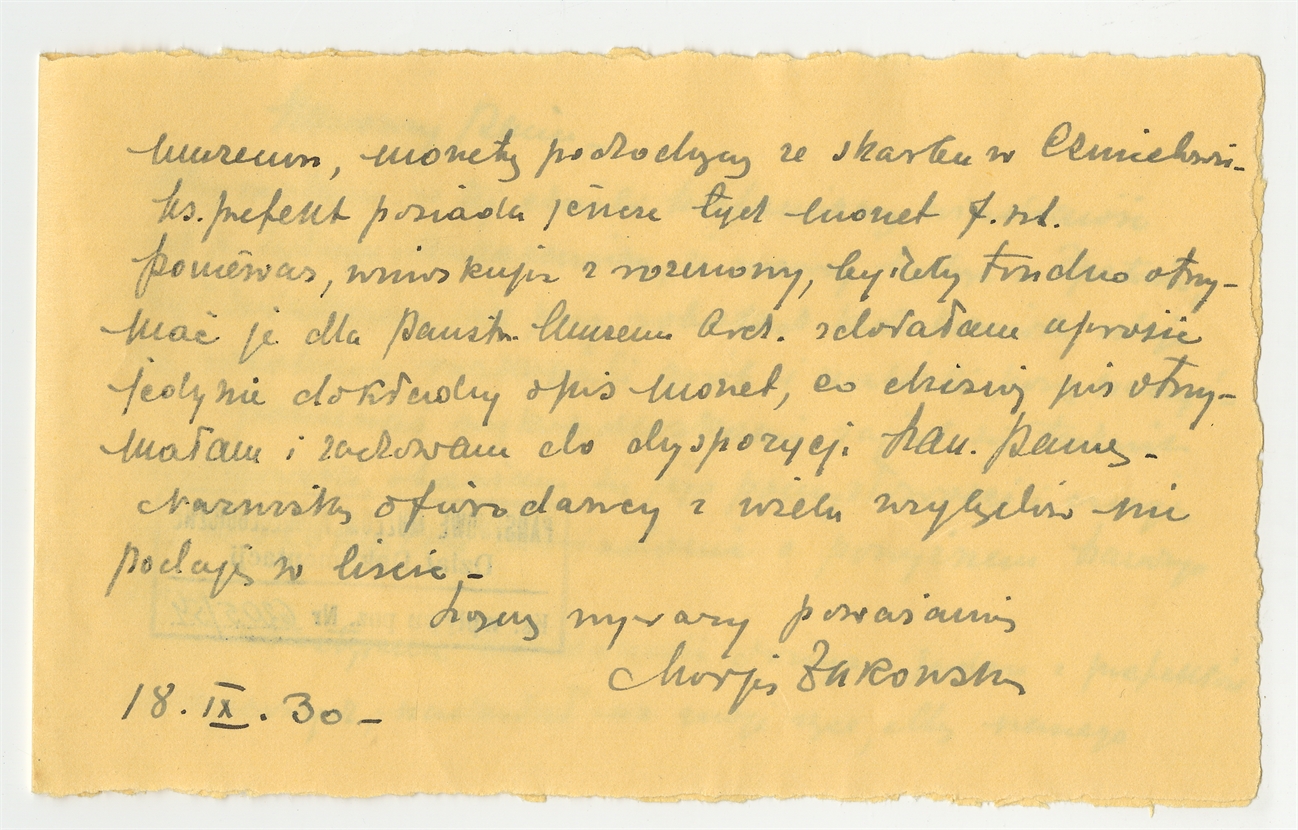 Muzeum, monety pochodzący ze skarbu w Ćmielowie-
ks. prefekt posiada jeszcze tych monet 7. szt.
Ponieważ, wnioskując z rozmowy, byłoby trudno otrzy-
mać je dla Państw. Muzeum Arch. zdołałam uprosić
jedynie dokładny opis monet, co dzisiaj otrzy-
małam i zachowam do dyspozycji Pana.-
Nazwiska ofiarodawcy z wielu względów nie
podaję w liście,-
Łączę wyrazy poważania
Marja Żakowska
18. IX. 30-